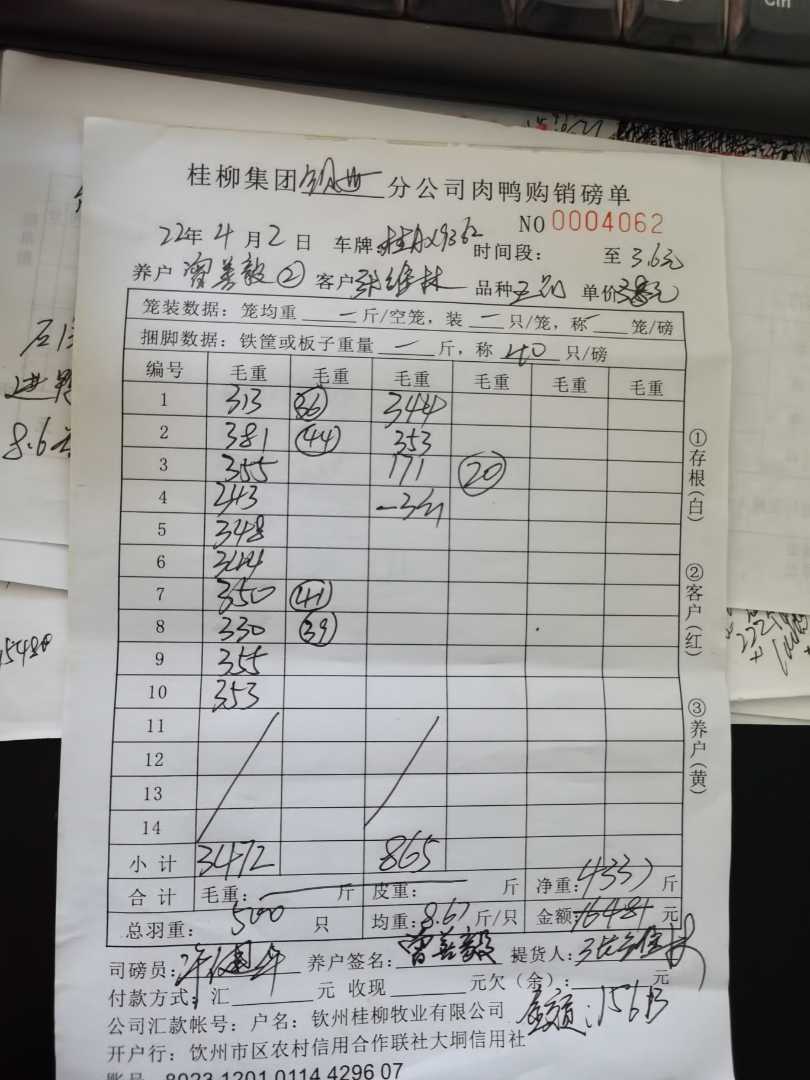 桂柳集团 分公司肉鸭购销磅单
NO 0004062
22年4月2日 车牌:桂A×9362 时间段: 至 3.6元
养户 曾善毅② 客户 张维林 品种 单价
笼装数据:笼均重 一 斤/空笼,装 一 只/笼,称 一 笼/磅
捆脚数据:铁筐或板子重量 一 斤,称 40 只/磅
编号 毛重 毛重 毛重 毛重 毛重 毛重
1 313 36 344
2 381 44 353
3 355 171 20
4 343
5 348
6 344
7 350 41
8 330 39
9 355
10 353
11
12
13
14
小计 3472 865
合计 毛重: 斤 皮重: 斤 净重:4337 斤
总羽重: 500 只 均重:8.67 斤/只 金额: 元
司磅员: 养户签名: 曾善毅 提货人:
付款方式:汇 元 收现 元欠(余): 元
公司汇款帐号:户名:钦州桂柳牧业有限公司
开户行:钦州市区农村信用合作联社大垌信用社
账号 8023 1201 0114 4296 07
①存根(白)
②客户(红)
③养户(黄)
8.6